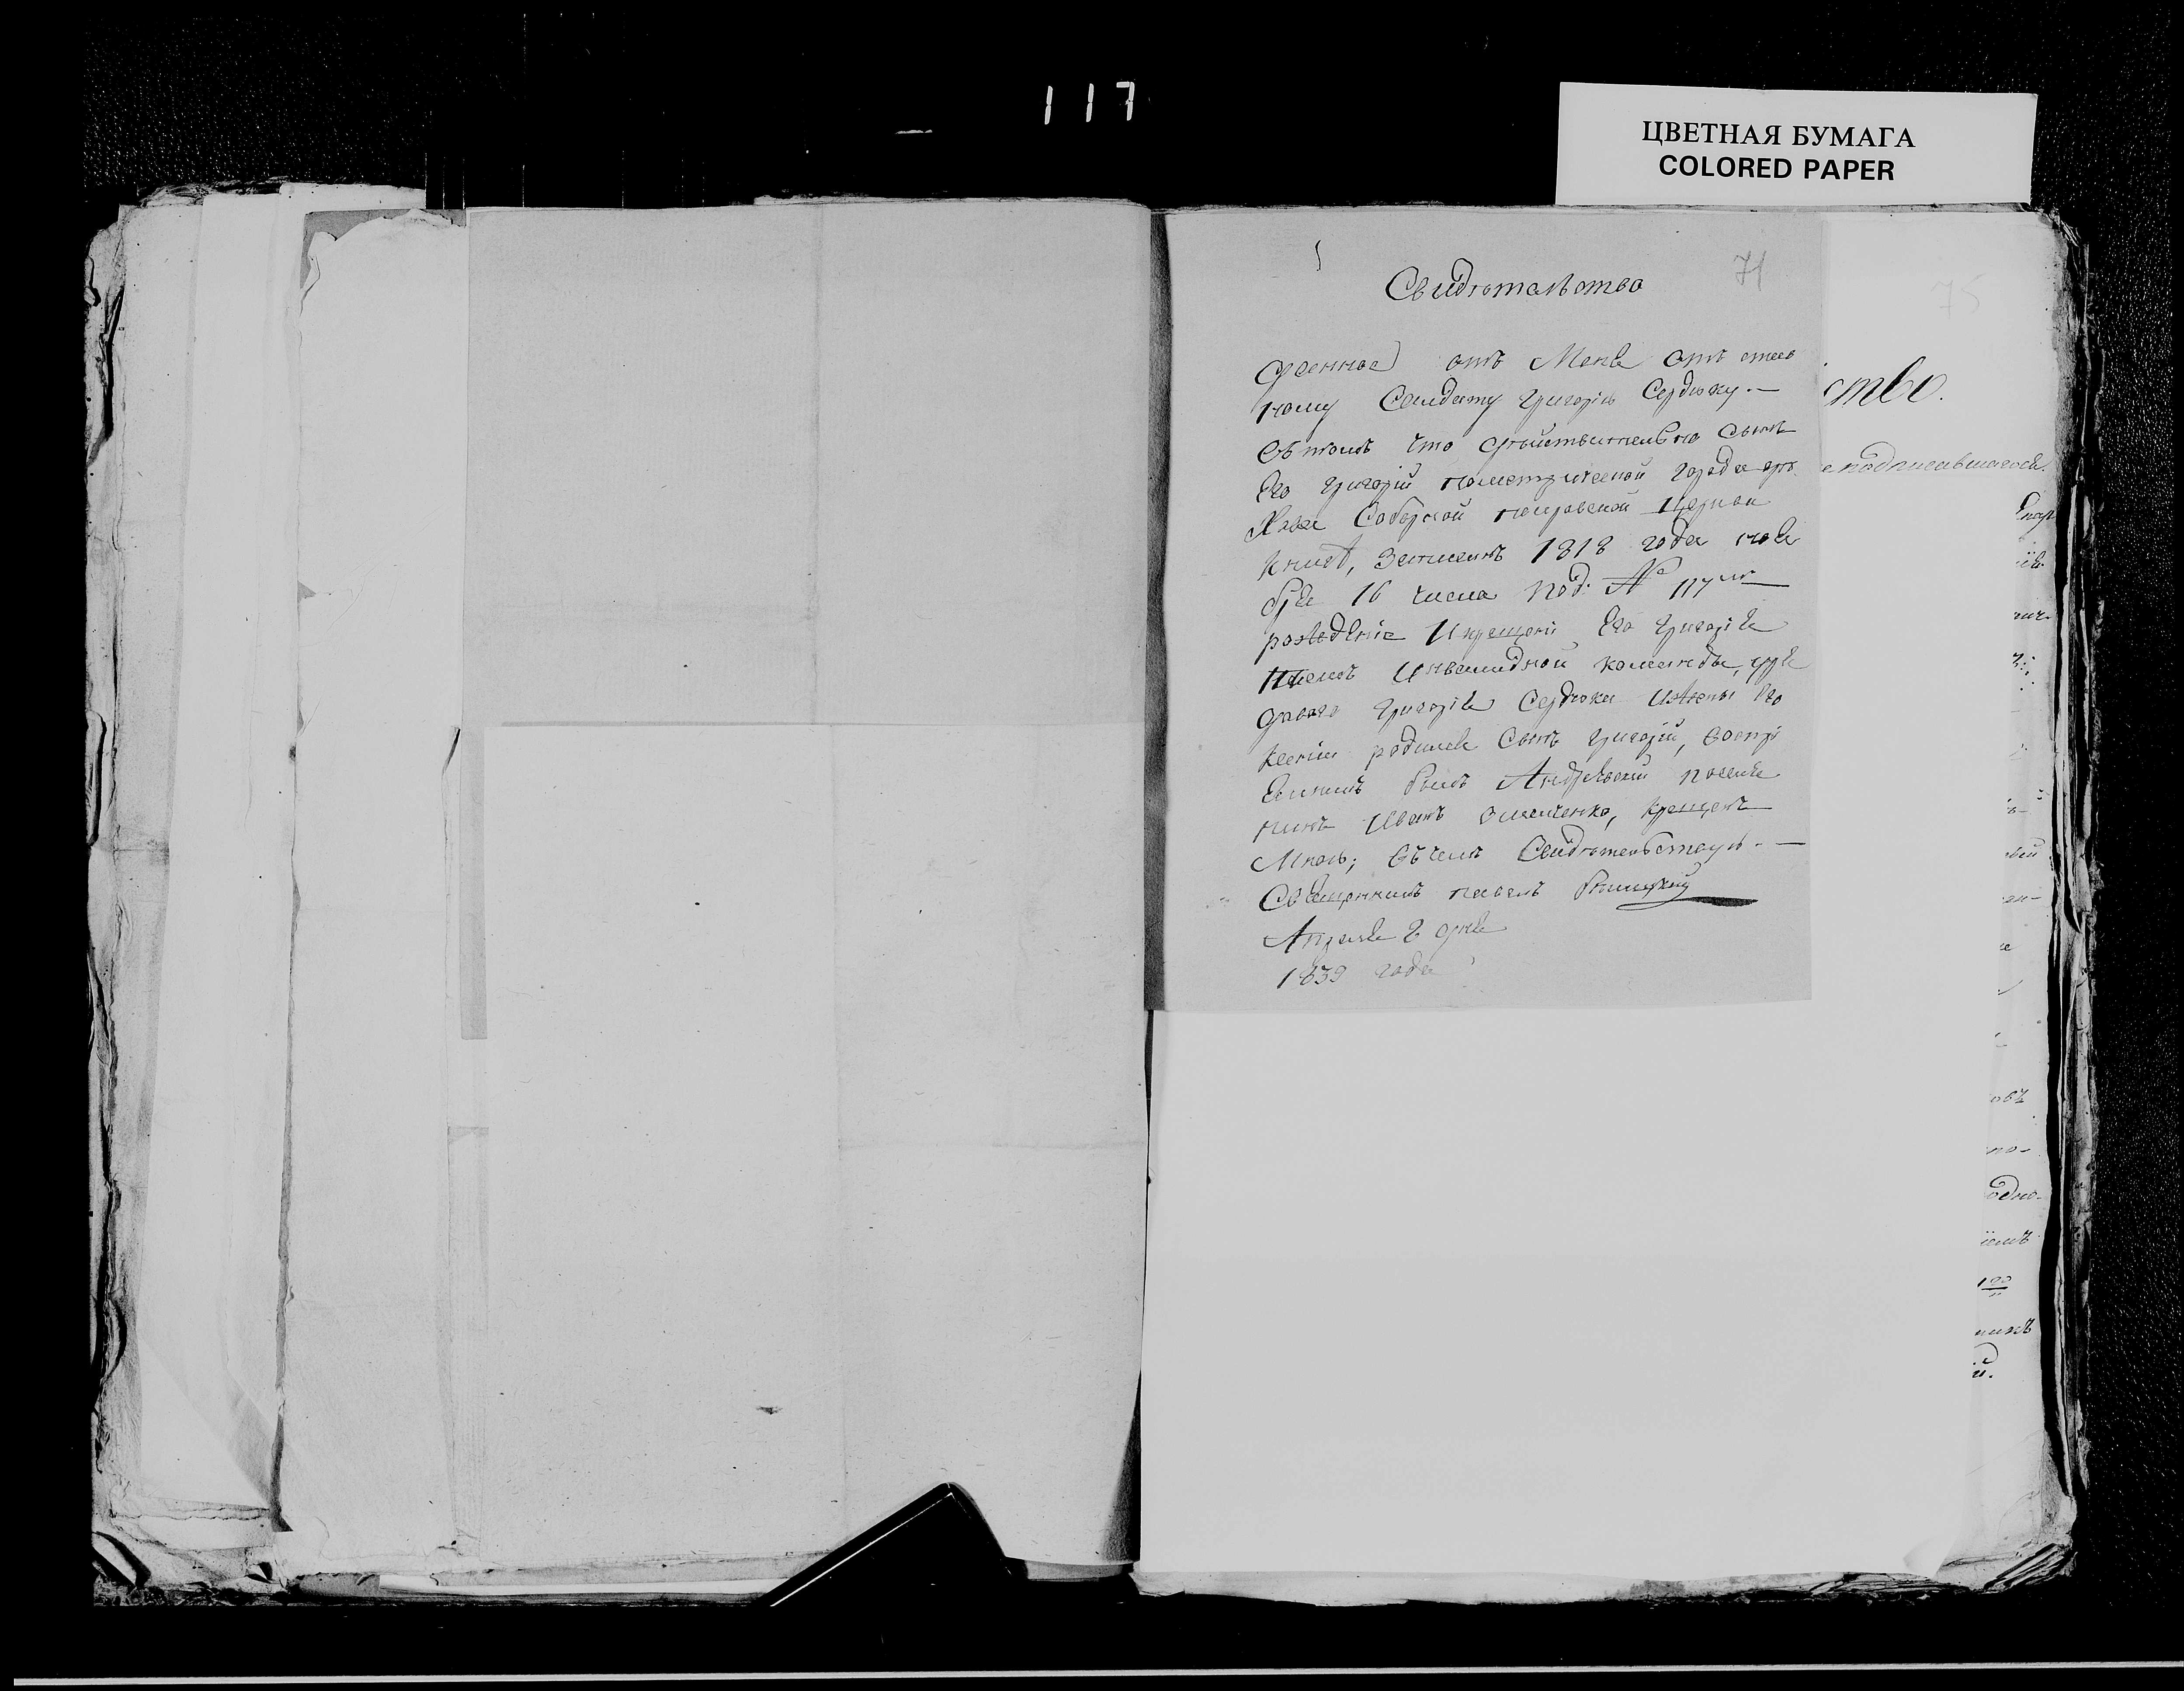 117
ЦВЕТНАЯ БУМАГА
COLORED PAPER
71
75
Свидѣтельство
Данное отъ Меня отъ став
ному Солдату Григорію Сердюку. —
Въ томъ что дѣйствительно Сынъ
Его Григорій пометрической города
Соборной покровской Церкви
книгѣ, записанъ 1818 года ноя
бря 16 числа под: № 117мъ
рождение И крещени Его Григорія
Инвалидной команды,
Григорія Сердюка Ижены Его
Ксеніи родился Сынъ Григорій, воспрі
емникъ былъ Андрѣевскій поселя
нинъ Иванъ, крещенъ
Мною; въ чемъ Свидѣтельствую. —
Священникъ павелъ
Апреля 2 дня
1839 года
ство.
подписавшагося.
одно-